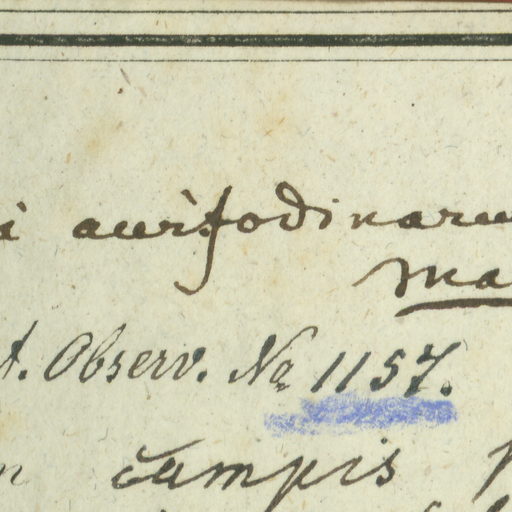 aurifodinarum
ma
t. Observ. No 1157.
campis